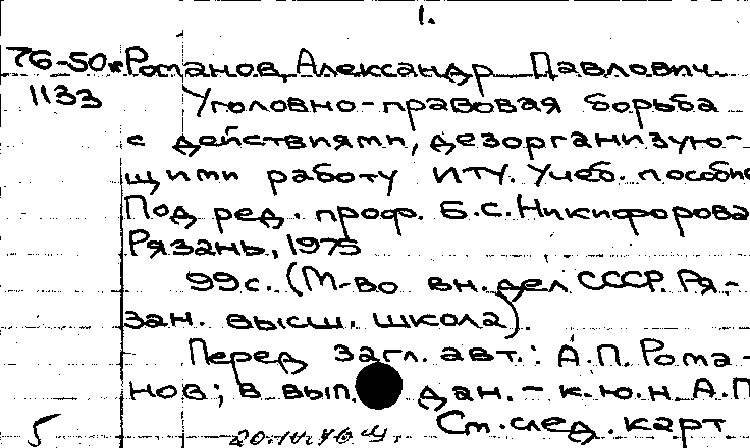 1.
76-50к Романов, Александр Павлович.
1133 Уголовно-правовая борьба
с действиями, дезорганизую-
щими работу ИТУ. Учеб. пособие
Под ред. проф. Б.С. Никифорова
Рязань, 1975
99с. (М-во вн. дел СССР. Ря-
зан. высш. школа).
Перед загл. авт.: А.П. Рома-
нов; в вып. дан. - к.ю.н А.П
5 См. след. карт.